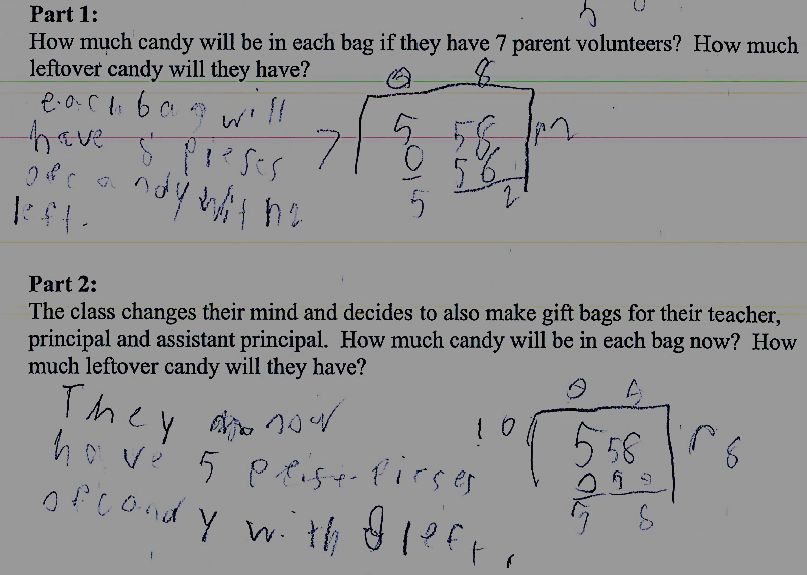 Part 1:
How much candy will be in each bag if they have 7 parent volunteers? How much
leftover candy will they have?
0 8
each bag will
have 8 pieses
of candy with 2
left.
7 5 58 r2
0 56
5 2
Part 2:
The class changes their mind and decides to also make gift bags for their teacher,
principal and assistant principal. How much candy will be in each bag now? How
much leftover candy will they have?
They now
have 5 pieses
of candy with 8 left.
10 5 58 r8
0
5 8